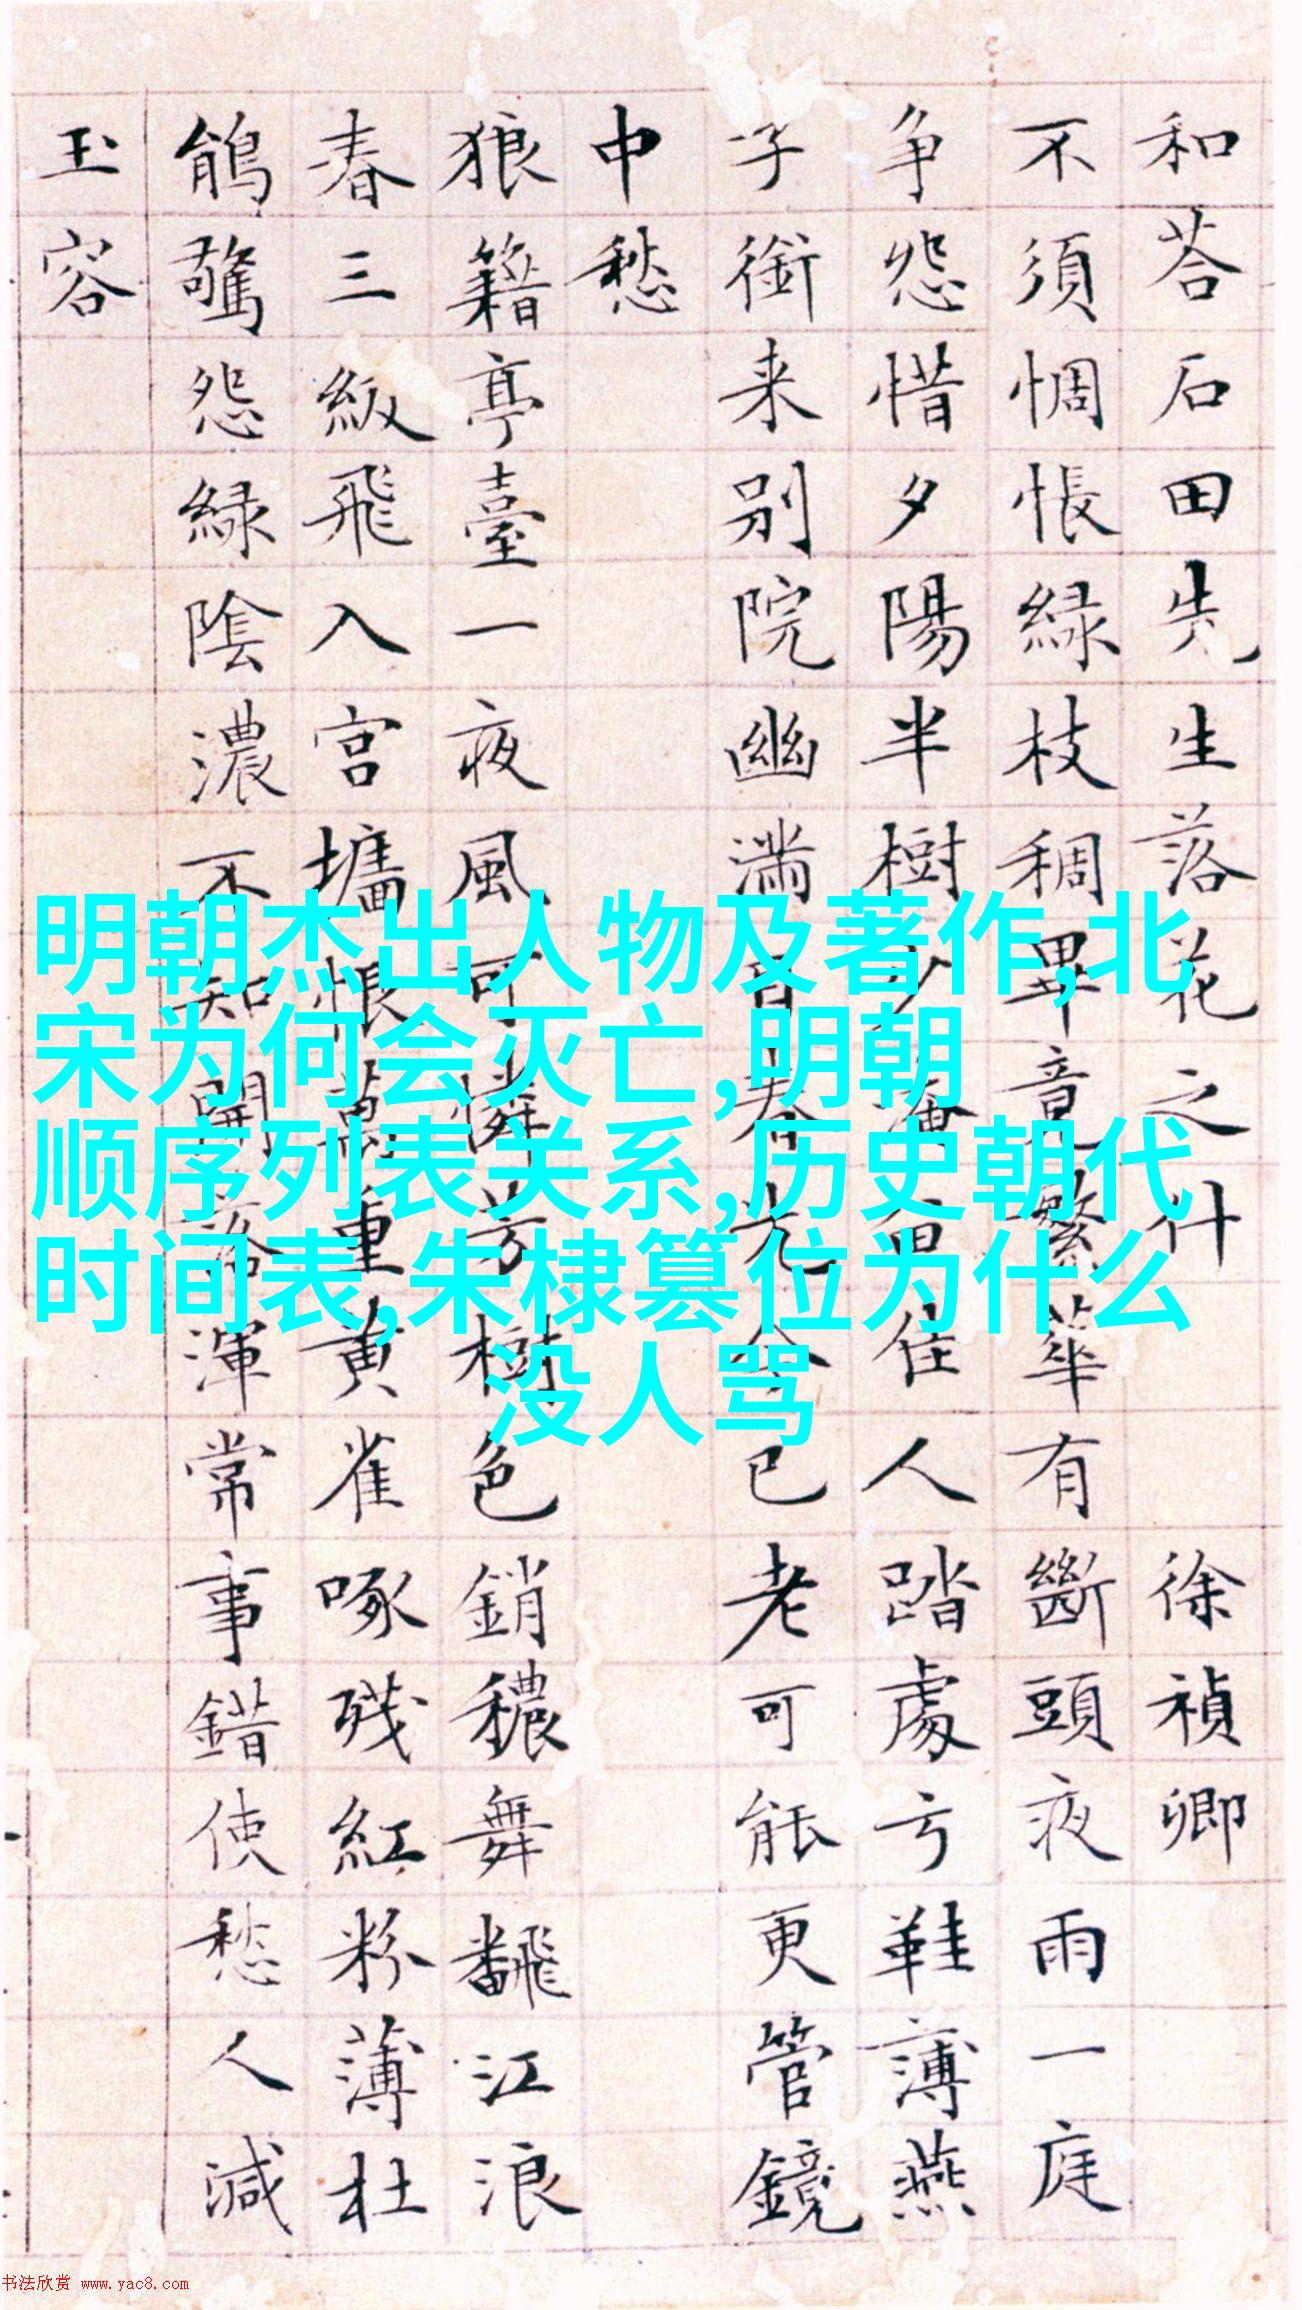 和荅石田先生落花之什 徐禎卿
不須惆悵緑枝稠畢竟繁華有斷頭夜雨一庭
争怨惜夕陽半樹少淹留佳人踏處弓鞋薄燕
子銜来别院幽满目春光今已老可能更管鏡
中愁
狼籍亭臺一夜風可憐芳樹色銷穠舞飜江浪
春三級飛入宫墻悵萬重黄雀啄残紅粉薄杜
鵑驚怨緑陰濃不知開落渾常事錯使愁人減
玉容
明朝杰出人物及著作,北
宋为何会灭亡,明朝
顺序列表关系,历史朝代
时间表,朱棣篡位为什么
没人骂
书法欣赏 www.yac8.com